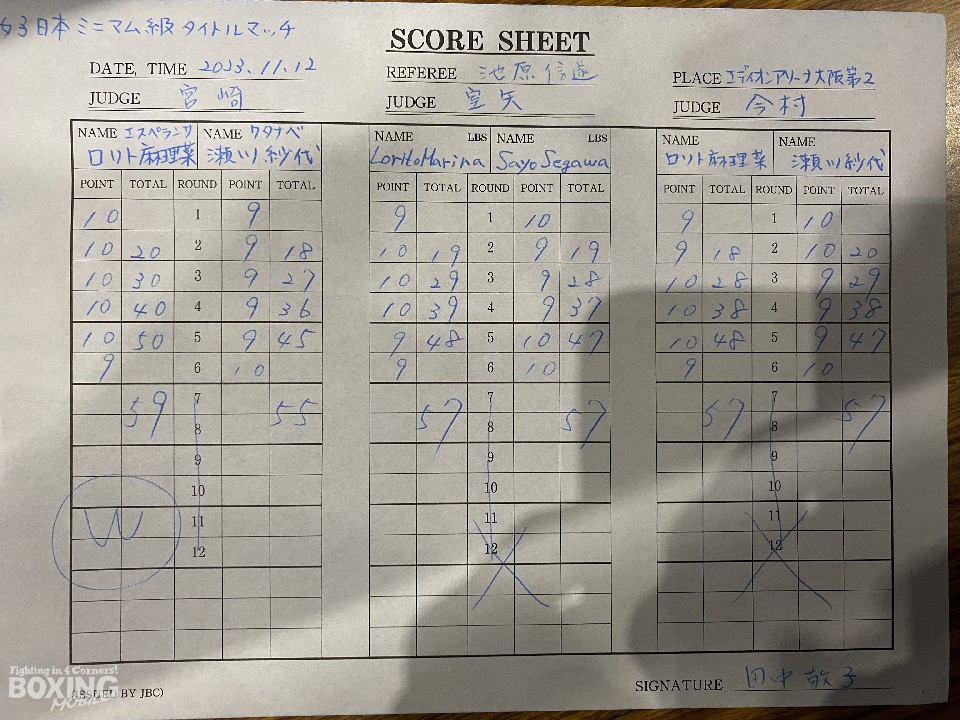 女子日本ミニマム級タイトルマッチ
SCORE SHEET
DATE, TIME 2023.11.12
REFEREE 池原信遂
PLACE エディオンアリーナ大阪第2
JUDGE 宮崎
JUDGE 室矢
JUDGE 今村
NAME エスペランサ NAME ワタナベ
ロリト麻理菜 瀬川紗代
POINT TOTAL ROUND POINT TOTAL
10 1 9
10 20 2 9 18
10 30 3 9 27
10 40 4 9 36
10 50 5 9 45
9 6 10
59 7 55
8
9
10
W 11
12
NAME LBS NAME LBS
Lorito Marina Sayo Segawa
POINT TOTAL ROUND POINT TOTAL
9 1 10
10 19 2 9 19
10 29 3 9 28
10 39 4 9 37
9 48 5 10 47
9 6 10
57 7 57
8
9
10
11
12
NAME NAME
ロリト麻理菜 瀬川紗代
POINT TOTAL ROUND POINT TOTAL
9 1 10
9 18 2 10 20
10 28 3 9 29
10 38 4 9 38
10 48 5 9 47
9 6 10
57 7 57
8
9
10
11
12
Fighting in 4 Corners!
BOXING
MOBILE
(ISSUED BY JBC)
SIGNATURE 田中敬子